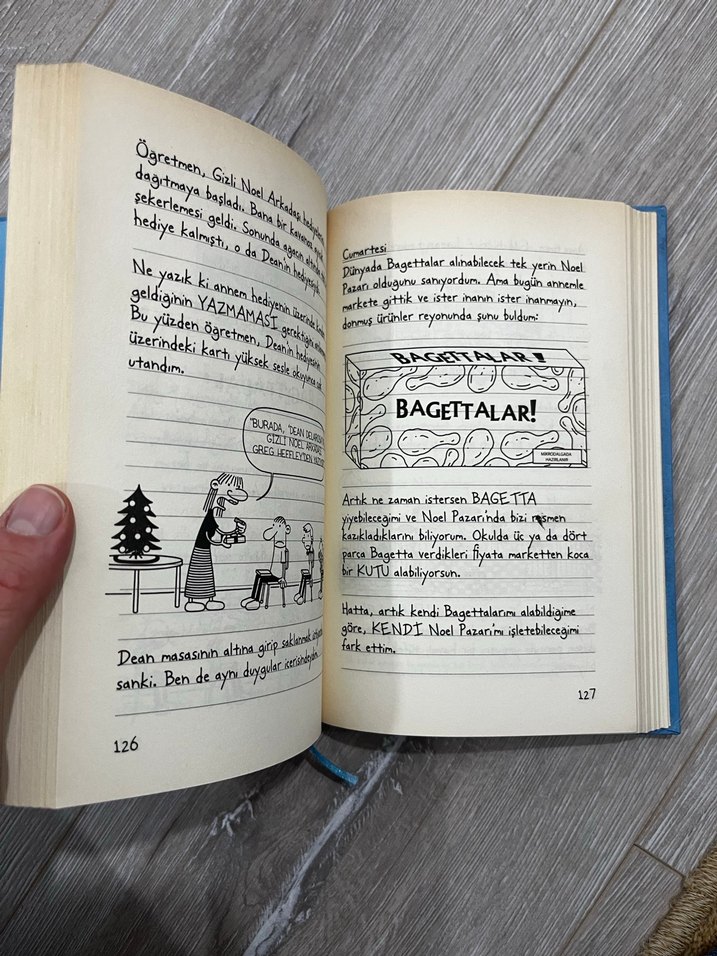 Öğretmen, Gizli Noel Arkadaşı
dağıtmaya başladı. Bana bir kavanoz
şekerlemesi geldi. Sonunda ağacın altında
hediye kalmıştı, o da Dean'in hediyesiydi.
Ne yazık ki annem hediyenin üzerinde
geldiğinin YAZMAMASI gerektiğini
Bu yüzden öğretmen, Dean'in hediyesinin
üzerindeki kartı yüksek sesle okuyunca çok
utandım.
"BURADA, 'DEAN
GİZLİ NOEL ARKADAŞI
GREG HEFFLEY'DEN
Dean masasının altına girip saklanmak
sanki. Ben de aynı duygular içerisindeydim.
126
Cumartesi
Dünyada Bagettalar alınabilecek tek yerin Noel
Pazarı olduğunu sanıyordum. Ama bugün annemle
markete gittik ve ister inanın ister inanmayın,
donmuş ürünler reyonunda şunu buldum:
BAGETTALAR!
BAGETTALAR!
MİKRODALGADA
HAZIRLANIR
Artık ne zaman istersen BAGETTA
yiyebileceğimi ve Noel Pazarı'nda bizi resmen
kazıkladıklarını biliyorum. Okulda üç ya da dört
parça Bagetta verdikleri fiyata marketten koca
bir KUTU alabiliyorsun.
Hatta, artık kendi Bagettalarımı alabildiğime
göre, KENDİ Noel Pazarı'mı işletebileceğimi
fark ettim.
127